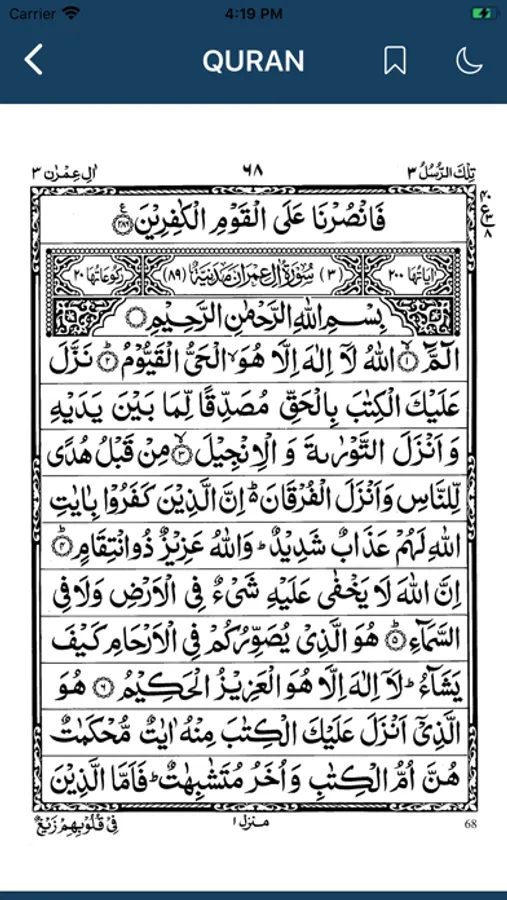 Carrier 4:19 PM
QURAN
تِلْكَ الرُّسُلُ ٣ ٦٨ اٰلِ عِمْرٰن ٣
فَانْصُرْنَا عَلَى الْقَوْمِ الْكٰفِرِيْنَ ﴿٢٨٦﴾
اٰيَاتُهَا ٢٠٠ (٣) سُوْرَةُ اٰلِ عِمْرَانَ مَدَنِيَّةٌ (٨٩) رُكُوْعَاتُهَا ٢٠
بِسْمِ اللهِ الرَّحْمٰنِ الرَّحِيْمِ
الٓمَّٓ ﴿١﴾ اللهُ لَاۤ اِلٰهَ اِلَّا هُوَ ۙ الْحَىُّ الْقَيُّوْمُ ﴿٢﴾ؕ نَزَّلَ
عَلَيْكَ الْكِتٰبَ بِالْحَقِّ مُصَدِّقًا لِّمَا بَيْنَ يَدَيْهِ
وَ اَنْزَلَ التَّوْرٰىةَ وَ الْاِنْجِيْلَ ﴿٣﴾ۙ مِنْ قَبْلُ هُدًى
لِّلنَّاسِ وَاَنْزَلَ الْفُرْقَانَ ؕ اِنَّ الَّذِيْنَ كَفَرُوْا بِاٰيٰتِ
اللهِ لَهُمْ عَذَابٌ شَدِيْدٌ ؕ وَاللهُ عَزِيْزٌ ذُوانْتِقَامٍ ﴿٤﴾ؕ
اِنَّ اللهَ لَا يَخْفٰى عَلَيْهِ شَىْءٌ فِى الْاَرْضِ وَلَا فِى
السَّمَآءِ ﴿٥﴾ؕ هُوَ الَّذِىْ يُصَوِّرُكُمْ فِى الْاَرْحَامِ كَيْفَ
يَشَآءُ ؕ لَاۤ اِلٰهَ اِلَّا هُوَ الْعَزِيْزُ الْحَكِيْمُ ﴿٦﴾ هُوَ
الَّذِىْۤ اَنْزَلَ عَلَيْكَ الْكِتٰبَ مِنْهُ اٰيٰتٌ مُّحْكَمٰتٌ
هُنَّ اُمُّ الْكِتٰبِ وَاُخَرُ مُتَشٰبِهٰتٌ ؕ فَاَمَّا الَّذِيْنَ
68 منزل ١ فِىْ قُلُوْبِهِمْ زَيْغٌ